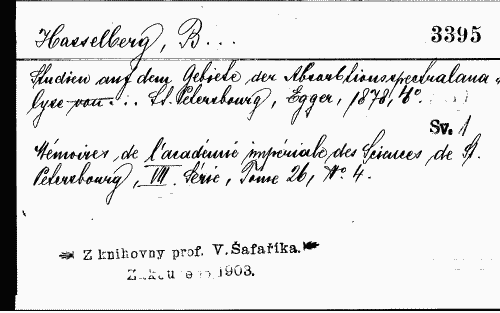 Hasselberg, B...
3395
Studien auf dem Gebiete der Absorbtionsspectralana-
lyse von... St. Petersbourg, Egger, 1878, 4°.
Sv. 1
Mémoires de l'académie impériale des Sciences de St.
Petersbourg, VII. Série, Tome 26, No. 4.
Z knihovny prof. V. Šafaříka.
Zakoupeno 1903.